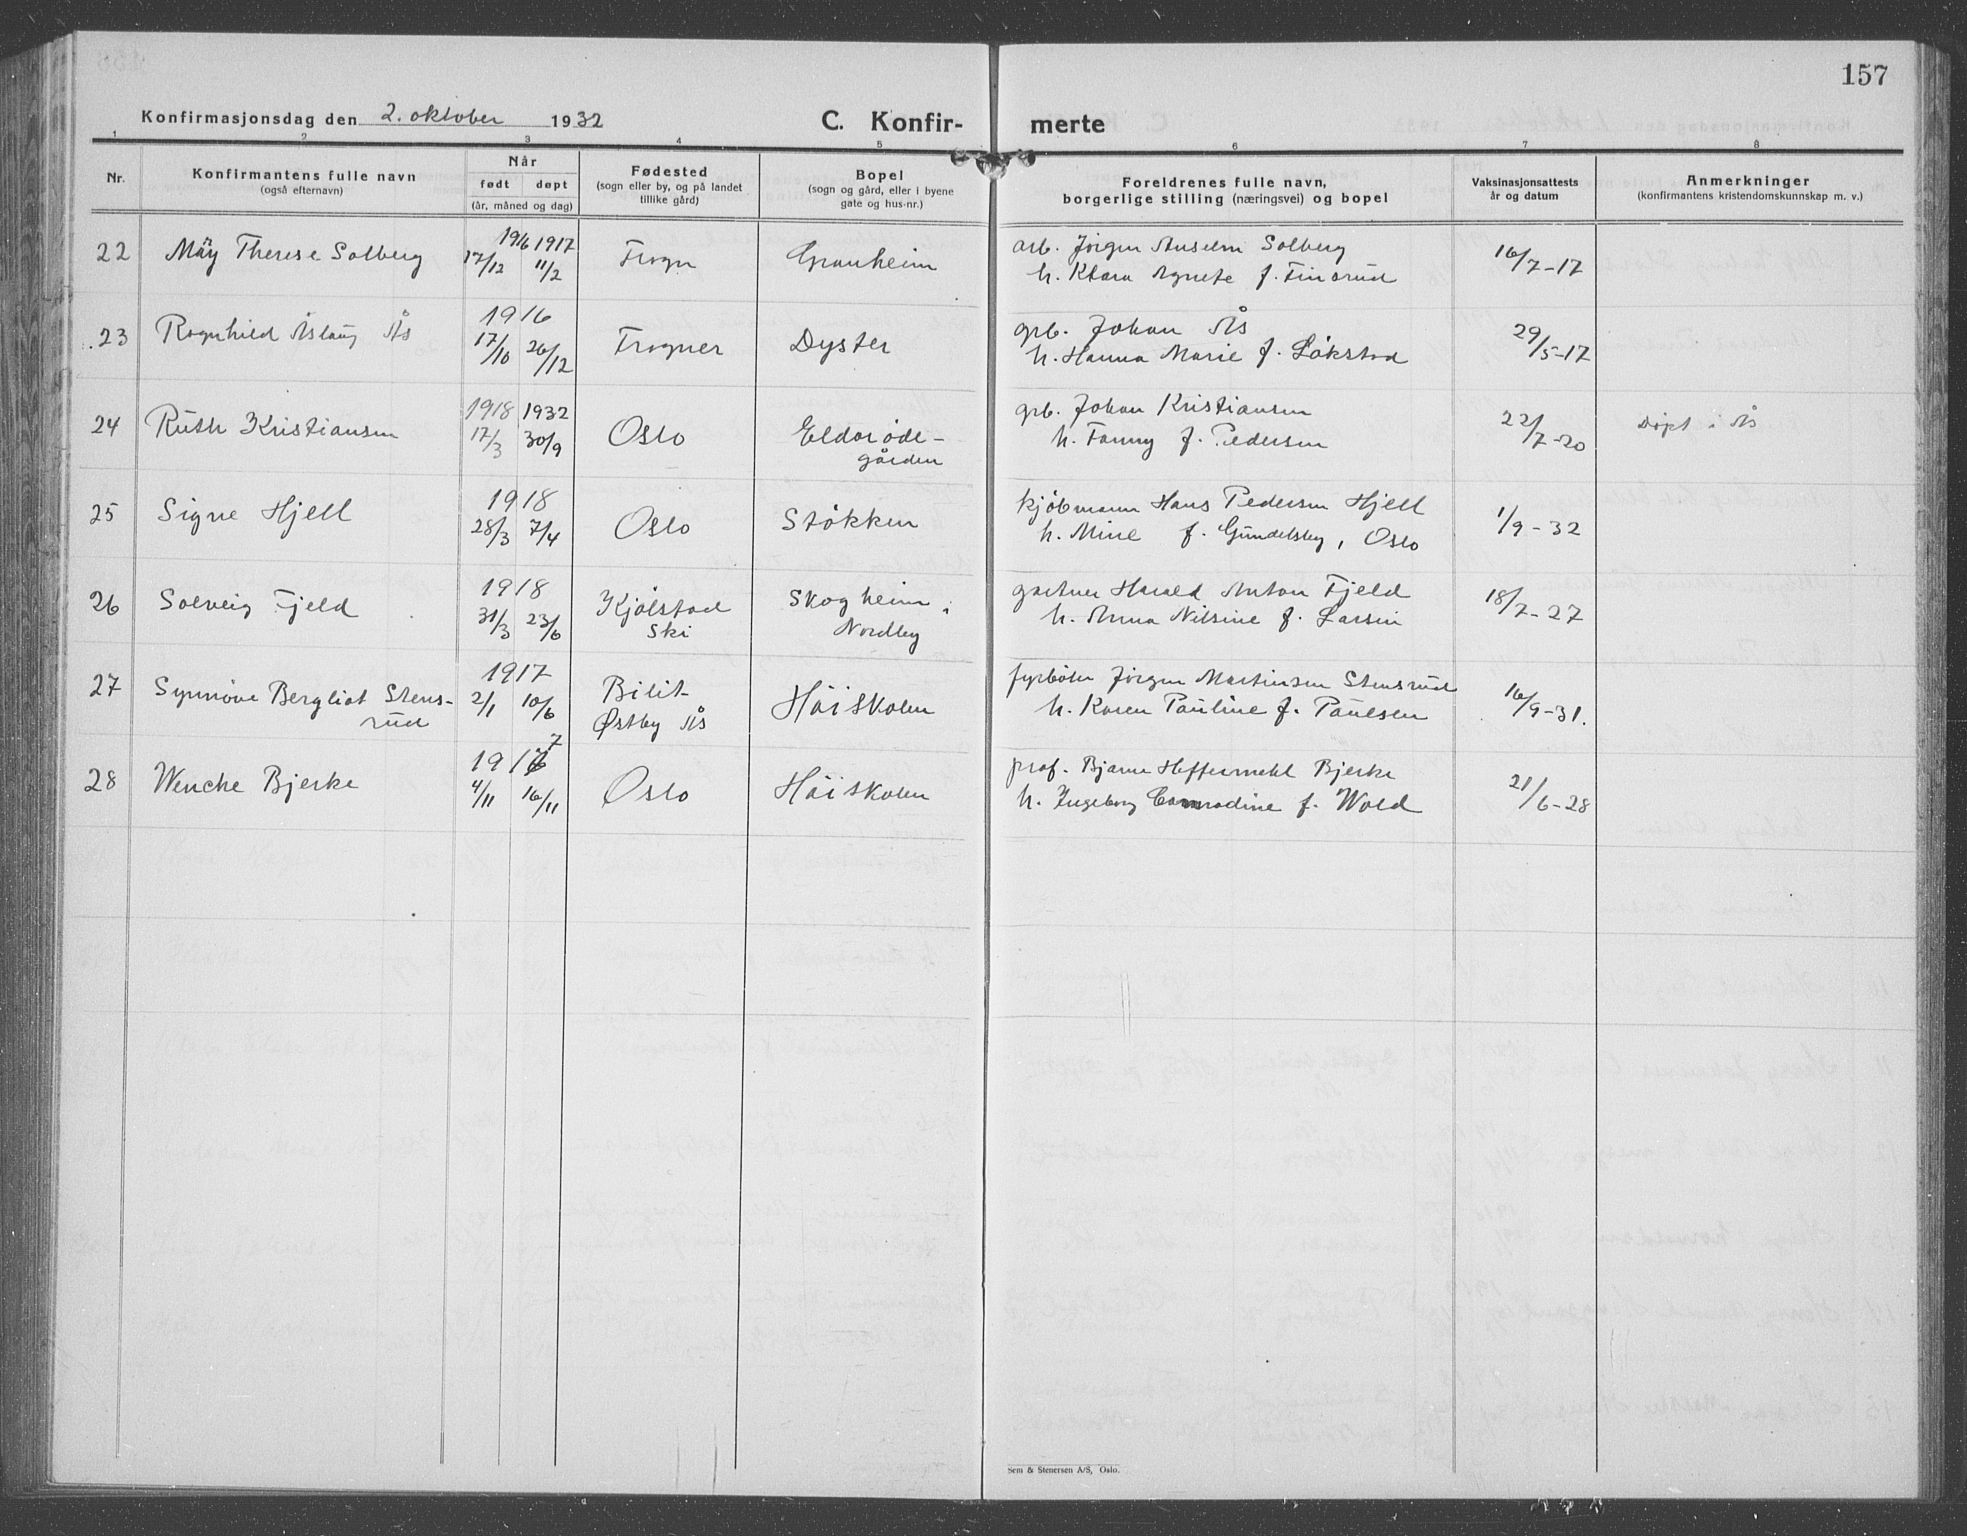 157
Konfirmasjonsdag den 2. oktober 1932
C. Konfir- merte
1 2 3 4 5 6 7 8
Nr.
Konfirmantens fulle navn
(også efternavn)
Når
født døpt
(år, måned og dag)
Fødested
(sogn eller by, og på landet
tillike gård)
Bopel
(sogn og gård, eller i byene
gate og hus-nr.)
Foreldrenes fulle navn,
borgerlige stilling (næringsvei) og bopel
Vaksinasjonsattests
år og datum
Anmerkninger
(konfirmantens kristendomskunnskap m. v.)
22 Mäy Therese Solberg 1916 17/12 1917 11/2 Frogn Granheim
arb. Jörgen Anselm Solberg
h. Klara Agnete f. Finsrud
16/7-17
23 Ragnhild Åslaug Ås 1916 17/10 26/12 Frogner Dyster
grb. Johan Ås
h. Hanna Marie f. Løkstad
29/5-17
24 Ruth Kristiansen 1918 17/3 1932 30/9 Oslo Eldorøde-
gården
grb. Johan Kristiansen
h. Fanny f. Pedersen
22/7-20 Døpt i Ås
25 Signe Hjell 1918 28/3 7/4 Oslo Støkken
kjøbmann Hans Pedersen Hjell
h. Mine f. Gundelsby, Oslo
1/9-32
26 Solveig Fjeld 1918 31/3 23/6 Kjølstad
Ski
Skogheim i
Nordby
gartner Harald Anton Fjeld
h. Anna Nilsine f. Larsen
18/7-27
27 Synnöve Bergliot Stens-
rud
1917 2/1 10/6 Bilit
Østby Ås
Höiskolen
fyrbøter Jörgen Martinsen Stensrud
h. Karen Pauline f. Paulsen
16/9-31.
28 Wenche Bjerke 1917 4/11 16/11 Oslo Höiskolen
prof. Bjarne Heftermehl Bjerke
h. Ingeborg Conradine f. Wold
21/6-28
Sem & Stenersen A/S, Oslo.